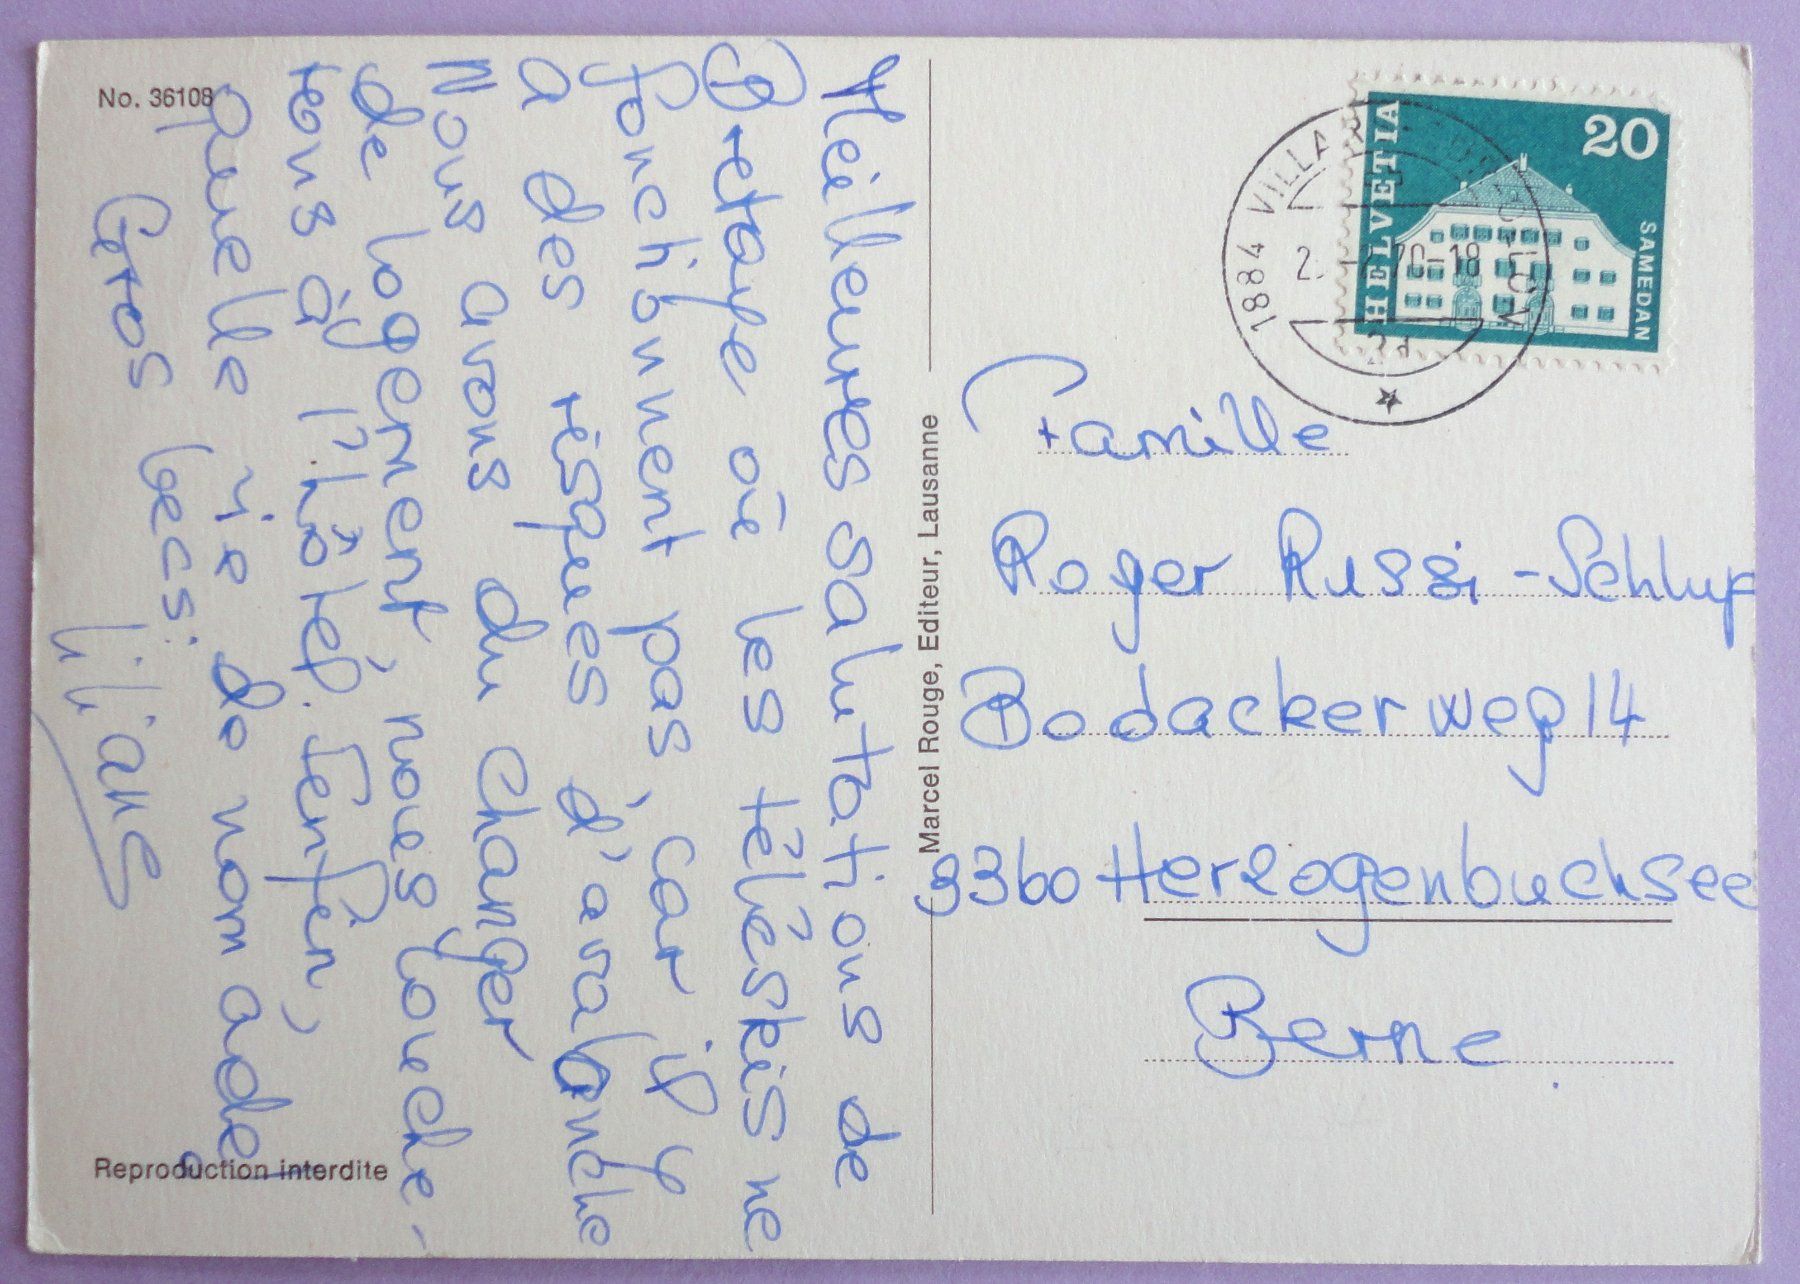 No. 36108
Meilleures salutations de
Bretaye où les téléskis ne
fonctionnent pas, car il y
a des risques d'avalanche
Nous avons du changer
de logement, nous couche-
rons à l'hôtel. Enfin,
quelle vie de nomade!
Gros becs:
Liliane
Reproduction interdite
Marcel Rouge, Editeur, Lausanne
1884 VILLA
2. 70-18
HELVETIA
20
SAMEDAN
Famille
Roger Russi-Schlup
Bodackerweg 14
3360 Herzogenbuchsee
Berne